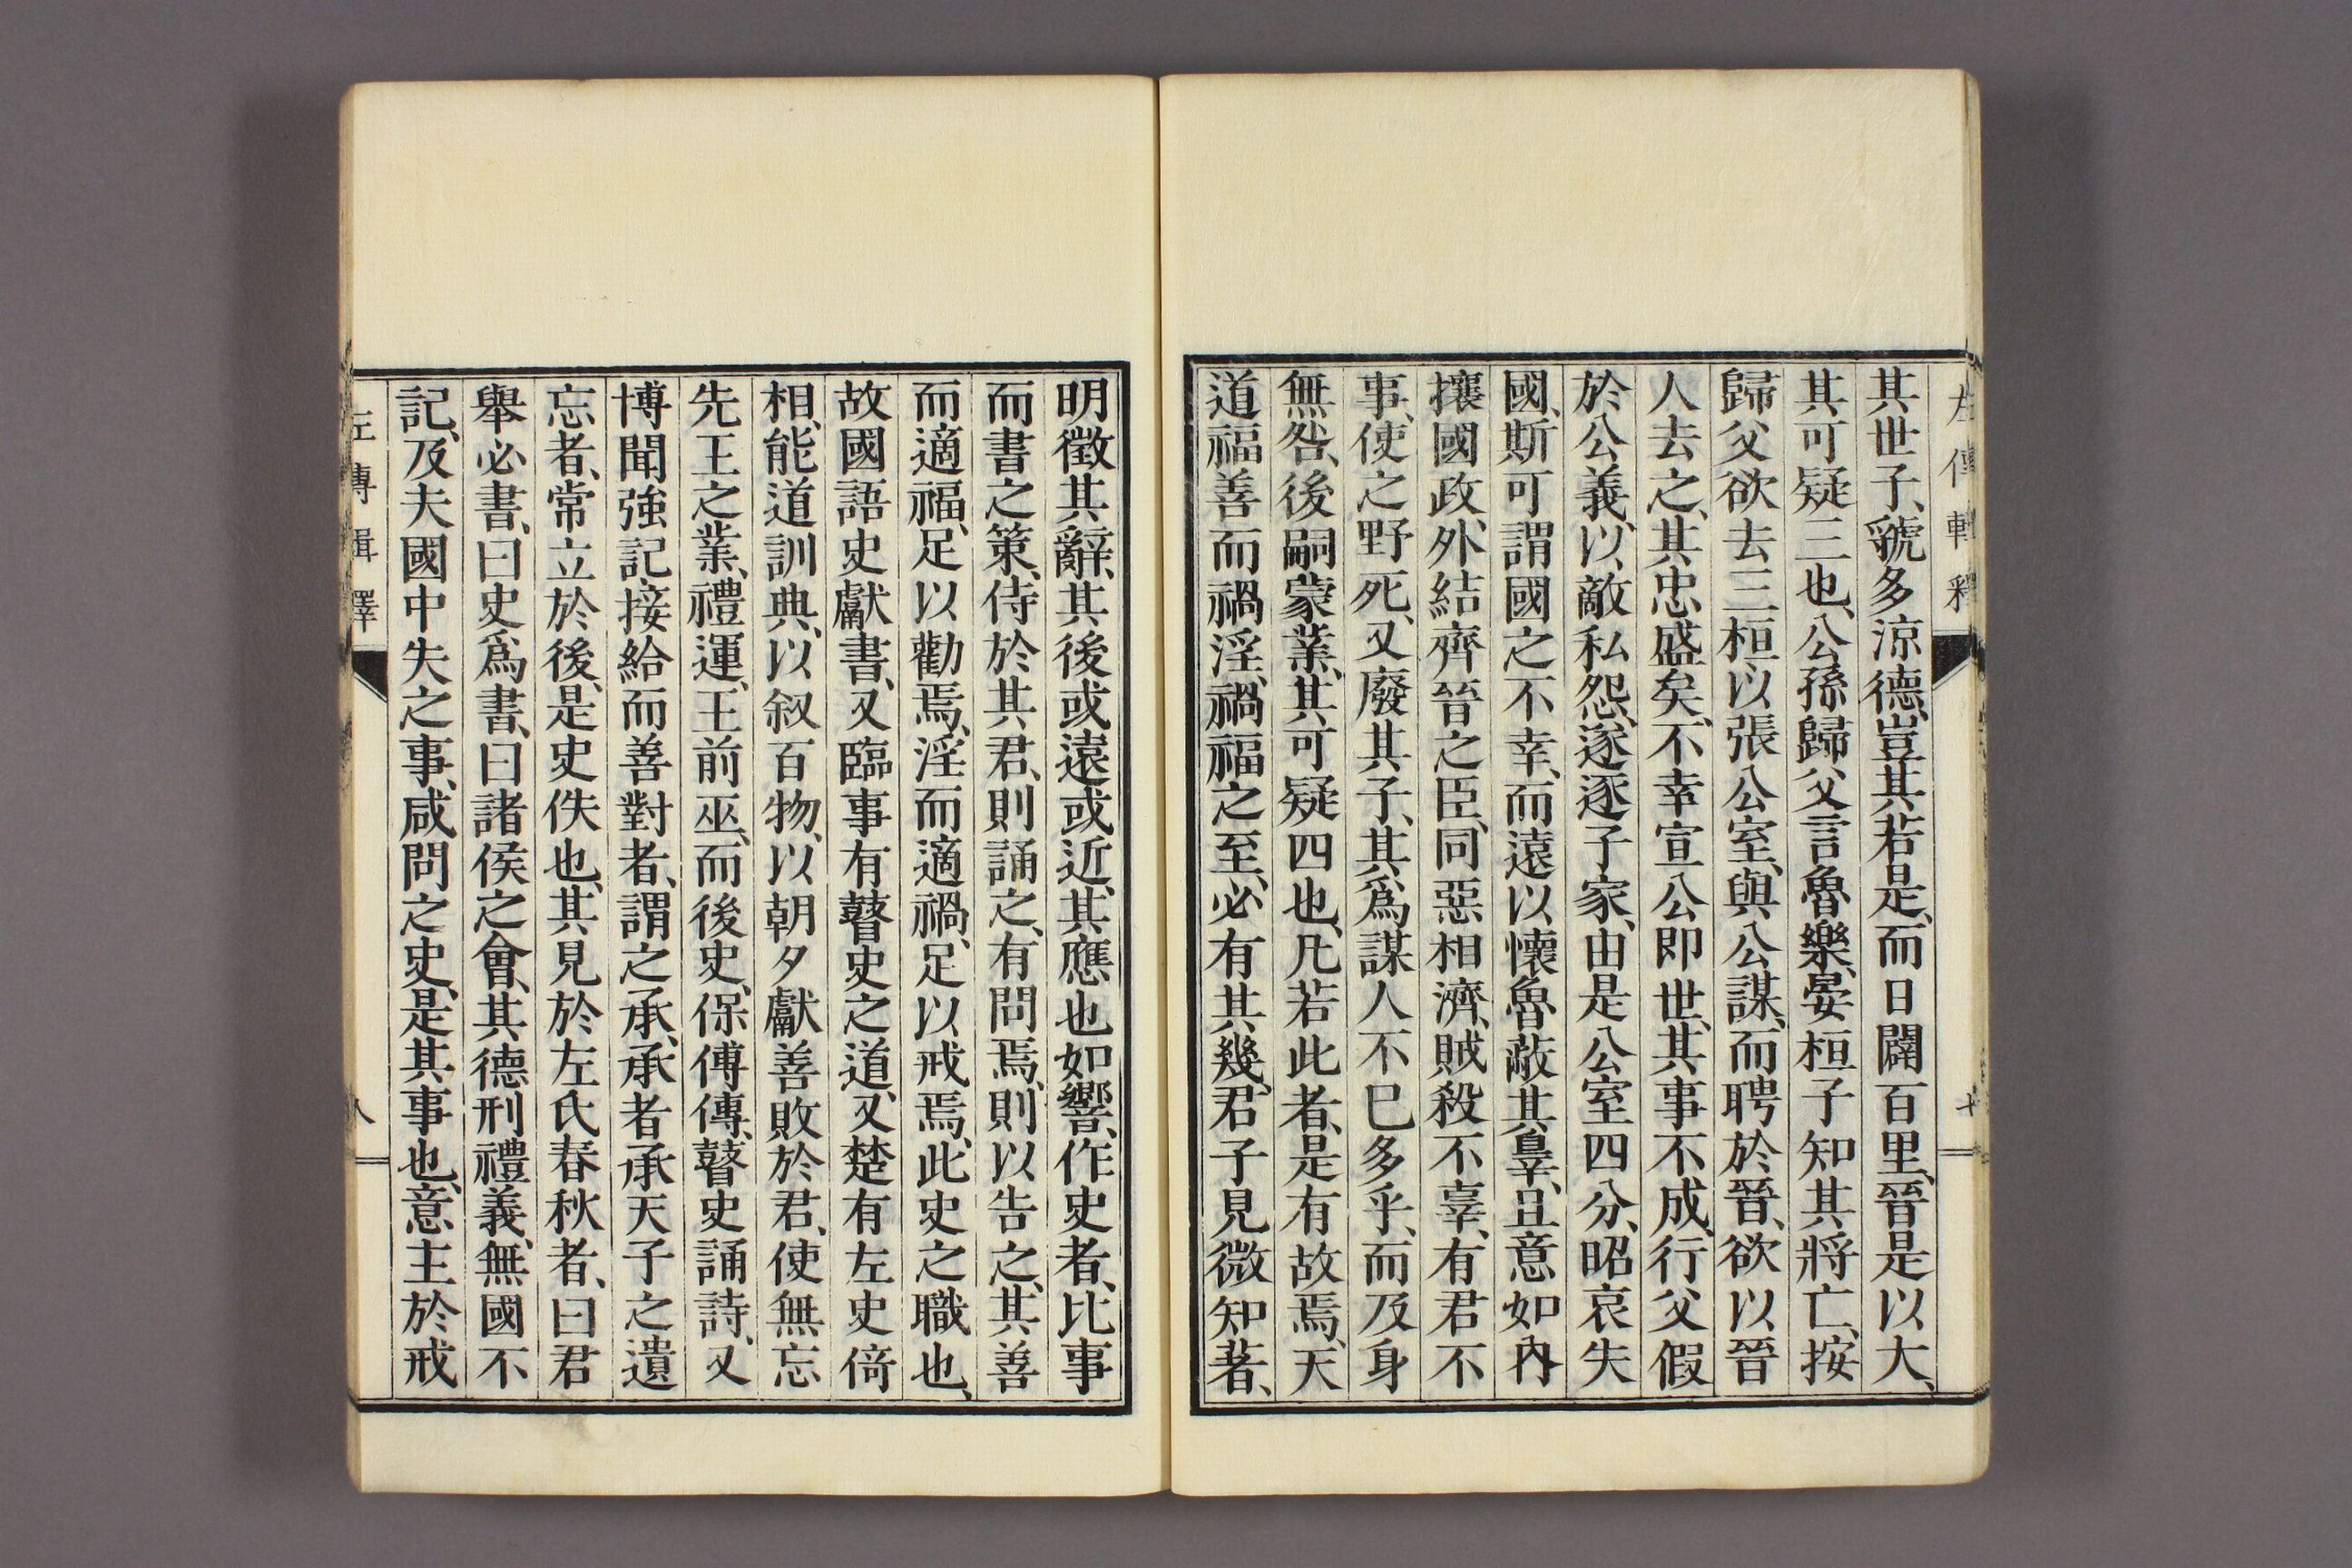 其世子、虢多涼德、豈其若是、而日闢百里、晉是以大、
其可疑三也、公孫歸父言魯樂、晏桓子知其將亡、按
歸父欲去三桓以張公室、與公謀、而聘於晉、欲以晉
人去之、其忠盛矣、不幸宣公即世、其事不成、行父假
於公義、以敵私怨、遂逐子家、由是公室四分、昭哀失
國、斯可謂國之不幸、而遠以懷魯蔽其辠、且意如內
攘國政、外結齊晉之臣、同惡相濟、賊殺不辜、有君不
事、使之野死、又廢其子、其爲謀人不巳多乎、而及身
無咎、後嗣蒙業、其可疑四也、凡若此者、是有故焉、天
道福善而禍淫、禍福之至、必有其幾、君子見微知著、
明徵其辭、其後或遠或近、其應也如響、作史者、比事
而書之策、侍於其君、則誦之、有問焉、則以告之、其善
而適福、足以勸焉、淫而適禍、足以戒焉、此史之職也、
故國語史獻書、又臨事有瞽史之道、又楚有左史倚
相、能道訓典、以叙百物、以朝夕獻善敗於君、使無忘
先王之業、禮運、王前巫、而後史、保傅傳、瞽史誦詩、又
博聞強記、接給而善對者、謂之承、承者承天子之遺
忘者、常立於後、是史佚也、其見於左氏春秋者、曰君
舉必書、曰史爲書、曰諸侯之會、其德刑禮義、無國不
記、及夫國中失之事、咸問之史、是其事也、意主於戒